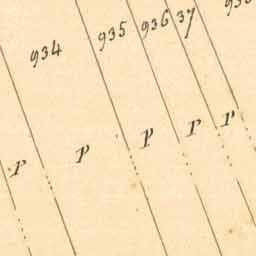 934 935 936 37
P P P P P